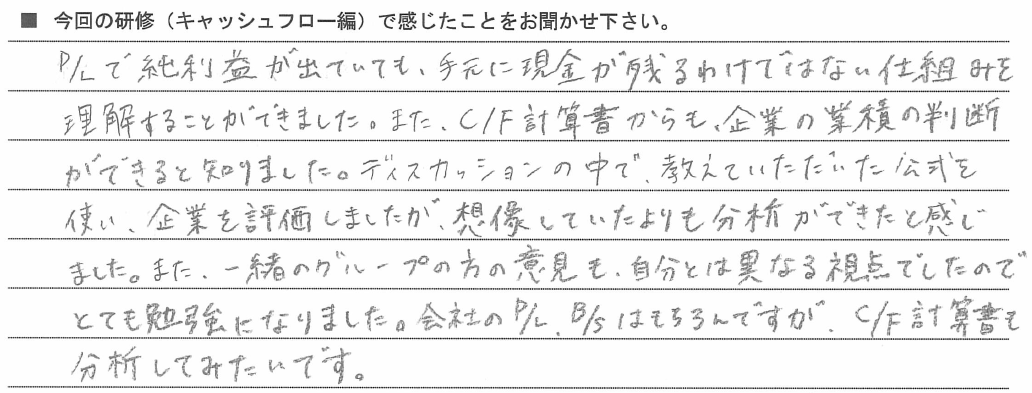 ■ 今回の研修（キャッシュフロー編）で感じたことをお聞かせ下さい。
P/Lで純利益が出ていても、手元に現金が残るわけではない仕組みを
理解することができました。また、C/F計算書からも、企業の業績の判断
ができると知りました。ディスカッションの中で、教えていただいた公式を
使い、企業を評価しましたが、想像していたよりも分析ができたと感じ
ました。また、一緒のグループの方の意見も、自分とは異なる視点でしたので
とても勉強になりました。会社のP/L、B/Sはもちろんですが、C/F計算書も
分析してみたいです。